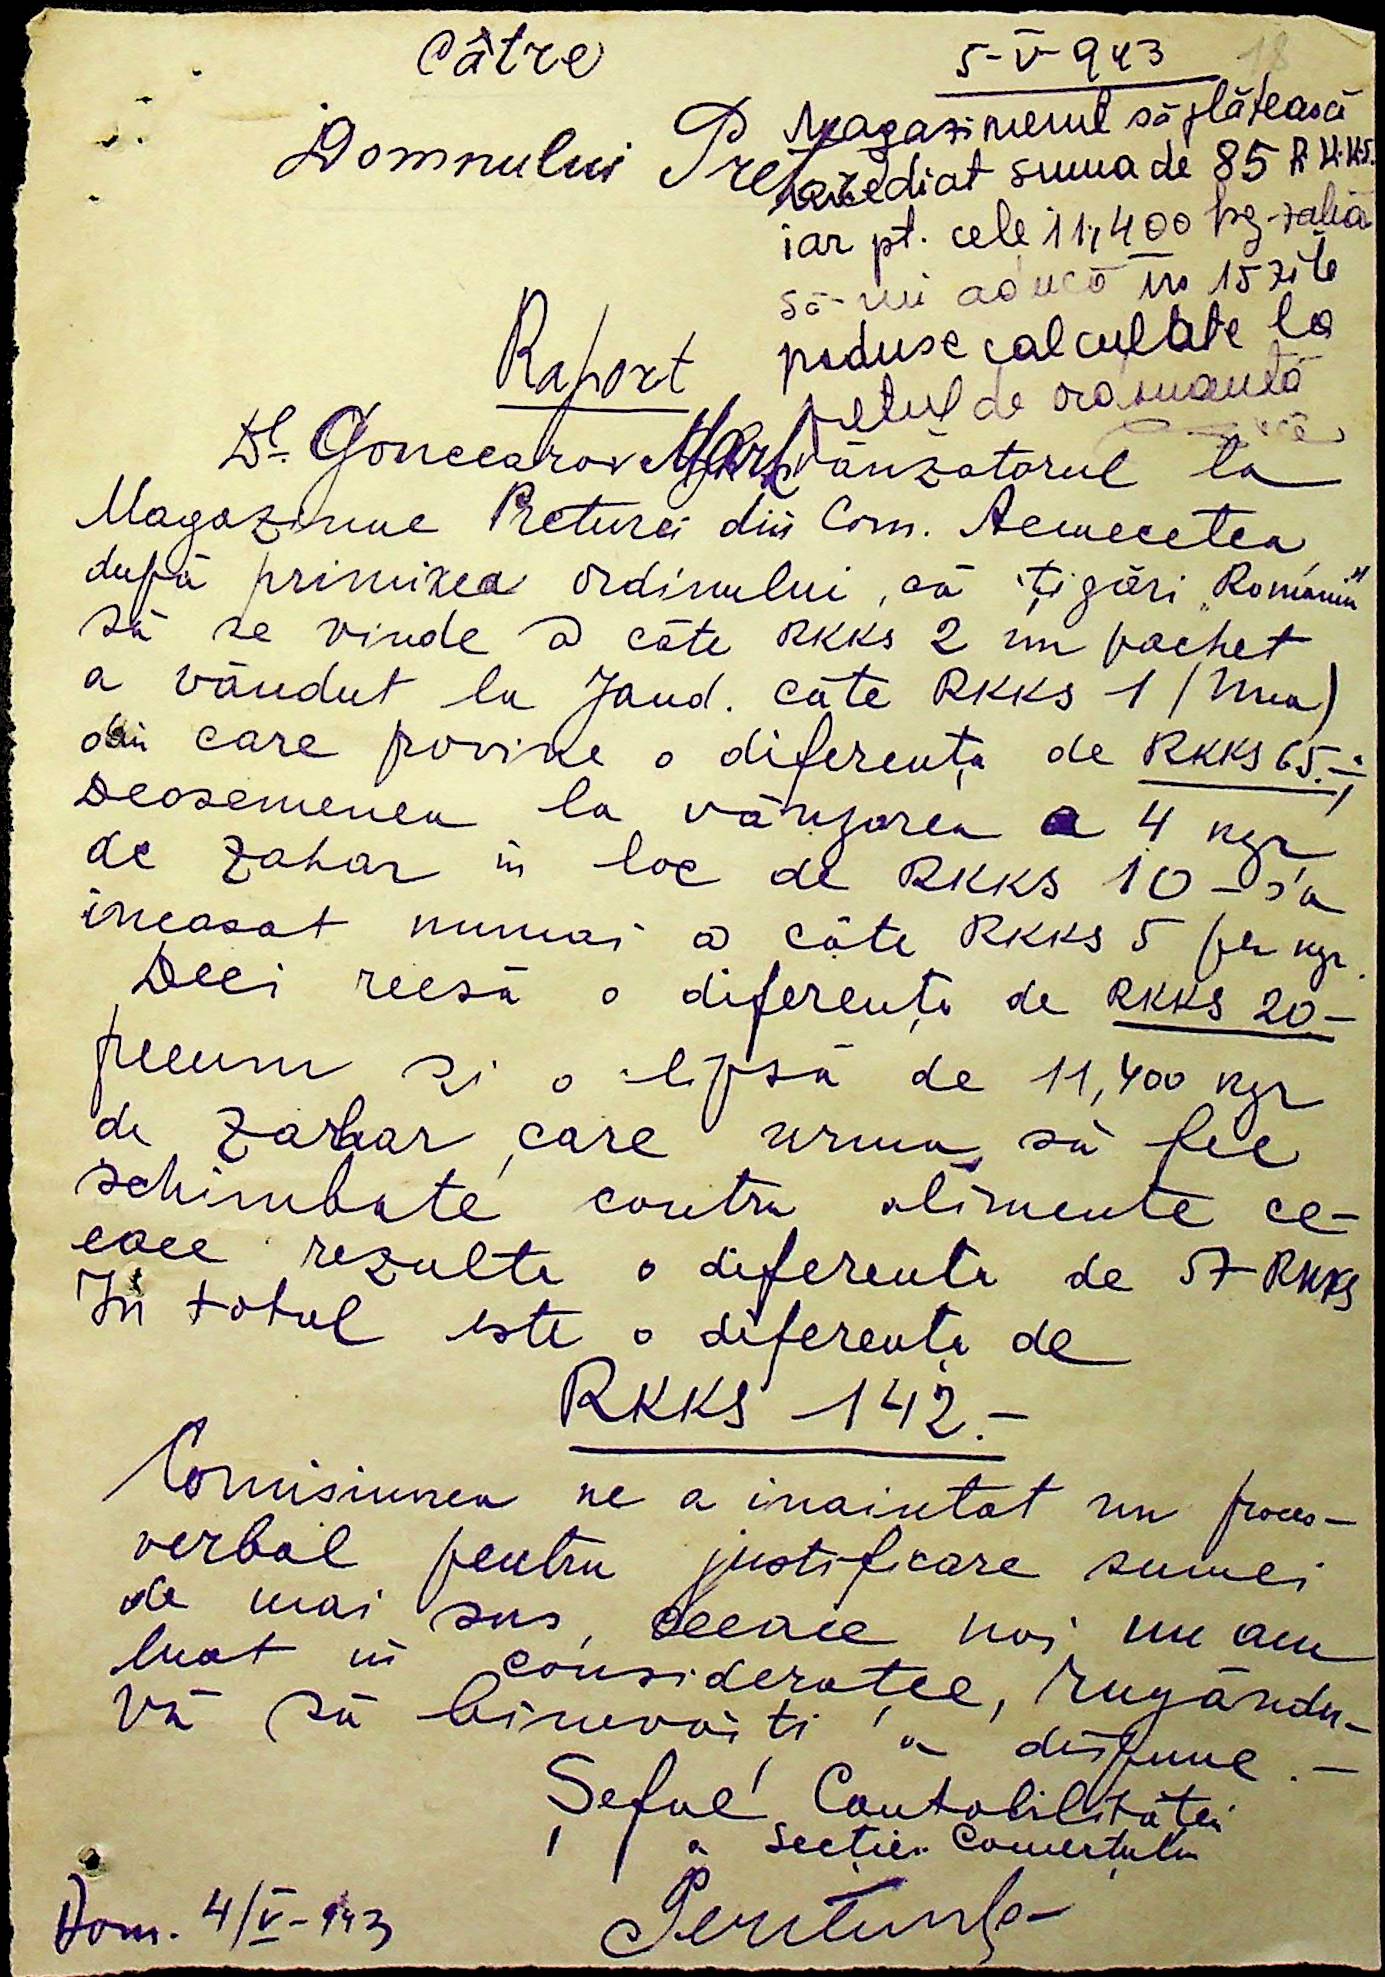 Câtre
5-V-943
18
Domnului Pretor
Magazinerul să plătească
imediat suma de 85 R.K.K.S.
iar pt. cele 11,400 kg. zahăr
să-mi aducă în 15 zile
poduse calculate la
pețul de ordonanță
Raport
Dl. Goncearov Mark vânzatorul la
Magazinue Preturei din Com. Acmecetca
după primirea ordinului, că țigări "Românii"
să se vinde a câte RKKS 2 un pachet
a vândut la Jand. câte RKKS 1 (Una)
din care provine o diferența de RKKS 65.-;
Deosemenea la vânzarea a 4 kgr
de Zahar in loc de RKKS 10 - s'a
incasat numai a câte RKKS 5 per kgr.
Deci reesă o diferența de RKKS 20-
precum și o lipsă de 11,400 kgr
de Zarhar, care urma, să fie
schimbate contra alimente ce-
eace rezulta o diferenta de 57 RKKS
In total este o diferența de
RKKS 142.-
Comisiunea ne a inaintat un proces-
verbal pentru justificare sumei
de mai sus, ceeace noi nu am
luat in considerație, rugându-
Vă să binevoiți a dispune.-
Șeful Contabilităței
a Secției Comerțului
Dom. 4/V-943